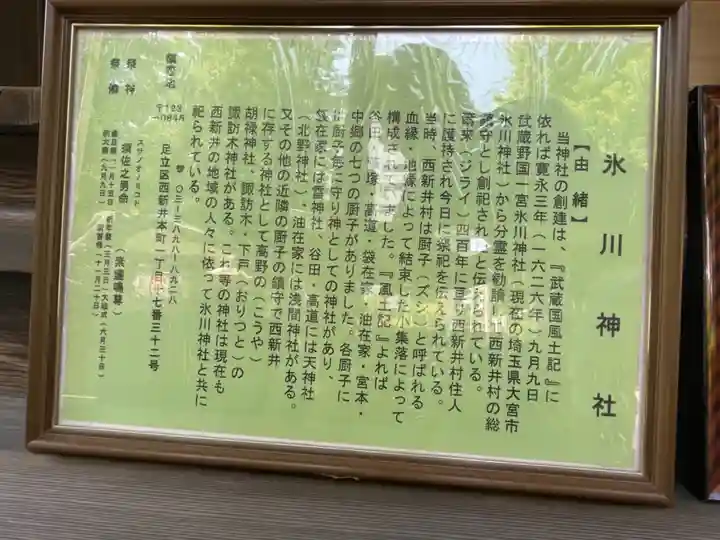 氷川神社
【由緒】
当神社の創建は、『武蔵国風土記』に
依れば寛永三年(一六二六年)九月九日
武蔵野国一宮氷川神社(現在の埼玉県大宮市
氷川神社)から分霊を勧請し、西新井村の総
鎮守とし創祀されたと伝えられている。
爾来(ジライ)四百年に亘り西新井村住人
に護持され今日に祭祀を伝えられている。
当時、西新井村は厨子(ズシ)と呼ばれる
血縁・地縁によって結束した小集落によって
構成されていました。『風土記』よれば
谷田・ 塚・高道・袋在家・油在家・宮本・
中郷の七つの厨子がありました。各厨子に
は厨子毎に守り神としての神社があり、
袋在家には雷神社、谷田・高道には天神社
(北野神社)、油在家には浅間神社がある。
又その他の近隣の厨子の鎮守で西新井
に存する神社として高野の(こうや)
胡禄神社、諏訪木・下戸(おりつと)の
諏訪木神社がある。これ等の神社は現在も
西新井の地域の人々に依って氷川神社と共に
祀られている。
鎮座地
〒123-0841
足立区西新井本町一丁目十七番三十二号
☎〇三-三八九八-八九二八
祭神
スサノオノミコト
須佐之男命(素盞嗚尊)
祭儀